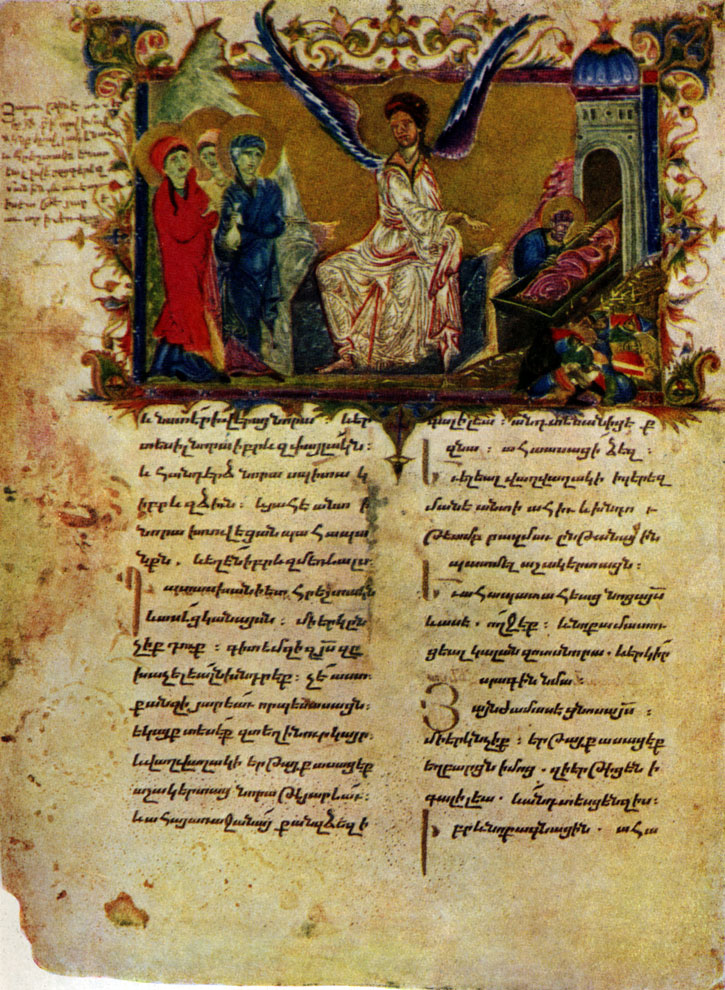 և նստէր ի վերայ նորա։ և էր
տեսիլ նորա իբրև զփայլակն։
և հանդերձ նորա սպիտակ
իբրև զձիւն։ և յահէ անտի
նորա խռովեցան պահապա
նքն. և եղեն իբրև զմեռեալս
Պատասխանի ետ հրեշտակն
և ասէ ցկանայսն։ մի երկըն
չիք դուք։ գիտեմ զի զյս զը
խաչելեալն խնդրէք։ չէ աստ.
քանզի յարեաւ որպէս ասացն։
եկայք տեսէք զտեղին ուր կայր.
և վաղվաղակի երթայք ասացէք
աշակերտաց նորա թէ յարեաւ։
և ահա յառաջանայ քան զձեզ ի
գալիլեա։ անդ տեսանիցէք
զնա։ ահա ասացի ձեզ։
Եւ ելեալ վաղվաղակի ի գերեզ
մանէ անտի ահիւ և խնդու
թեամբ բազմաւ ընթանային
պատմել աշակերտացն։
Եւ ահա պատահեաց նոցա յս
և ասէ. ողջ էք։ և նոքա մատու
ցեալ կալան զոտս նորա. և երկիր
պագին նմա։
Յայնժամ ասէ ցնոսա յս։
մի երկնչիք։ երթայք ասացէք
եղբարցն իմոց. զի երթիցեն ի
գալիլեա. և անդ տեսցեն զիս։
Իբրև նոքա գնացին. ահա